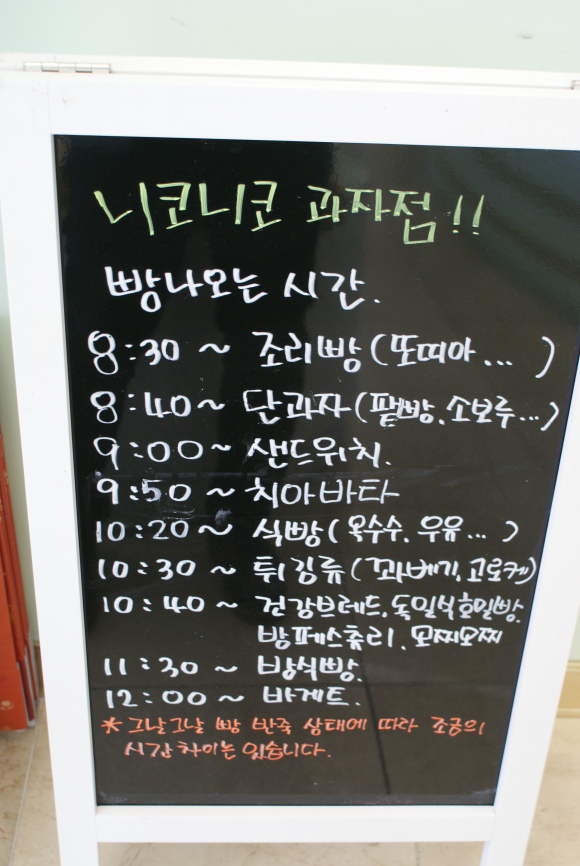 니코니코 과자점!!
빵나오는 시간.
8:30 ~ 조리빵 (또띠아...)
8:40 ~ 단과자 (팥빵, 소보루...)
9:00 ~ 샌드위치.
9:50 ~ 치아바타
10:20 ~ 식빵 (옥수수, 우유...)
10:30 ~ 튀김류 (꽈베기, 고로케)
10:40 ~ 건강브레드, 독일식호밀빵,
빵페스츄리, 모찌모찌
11:30 ~ 밤식빵.
12:00 ~ 바게트.
* 그날그날 빵 반죽 상태에 따라 조금의
시간차이는 있습니다.